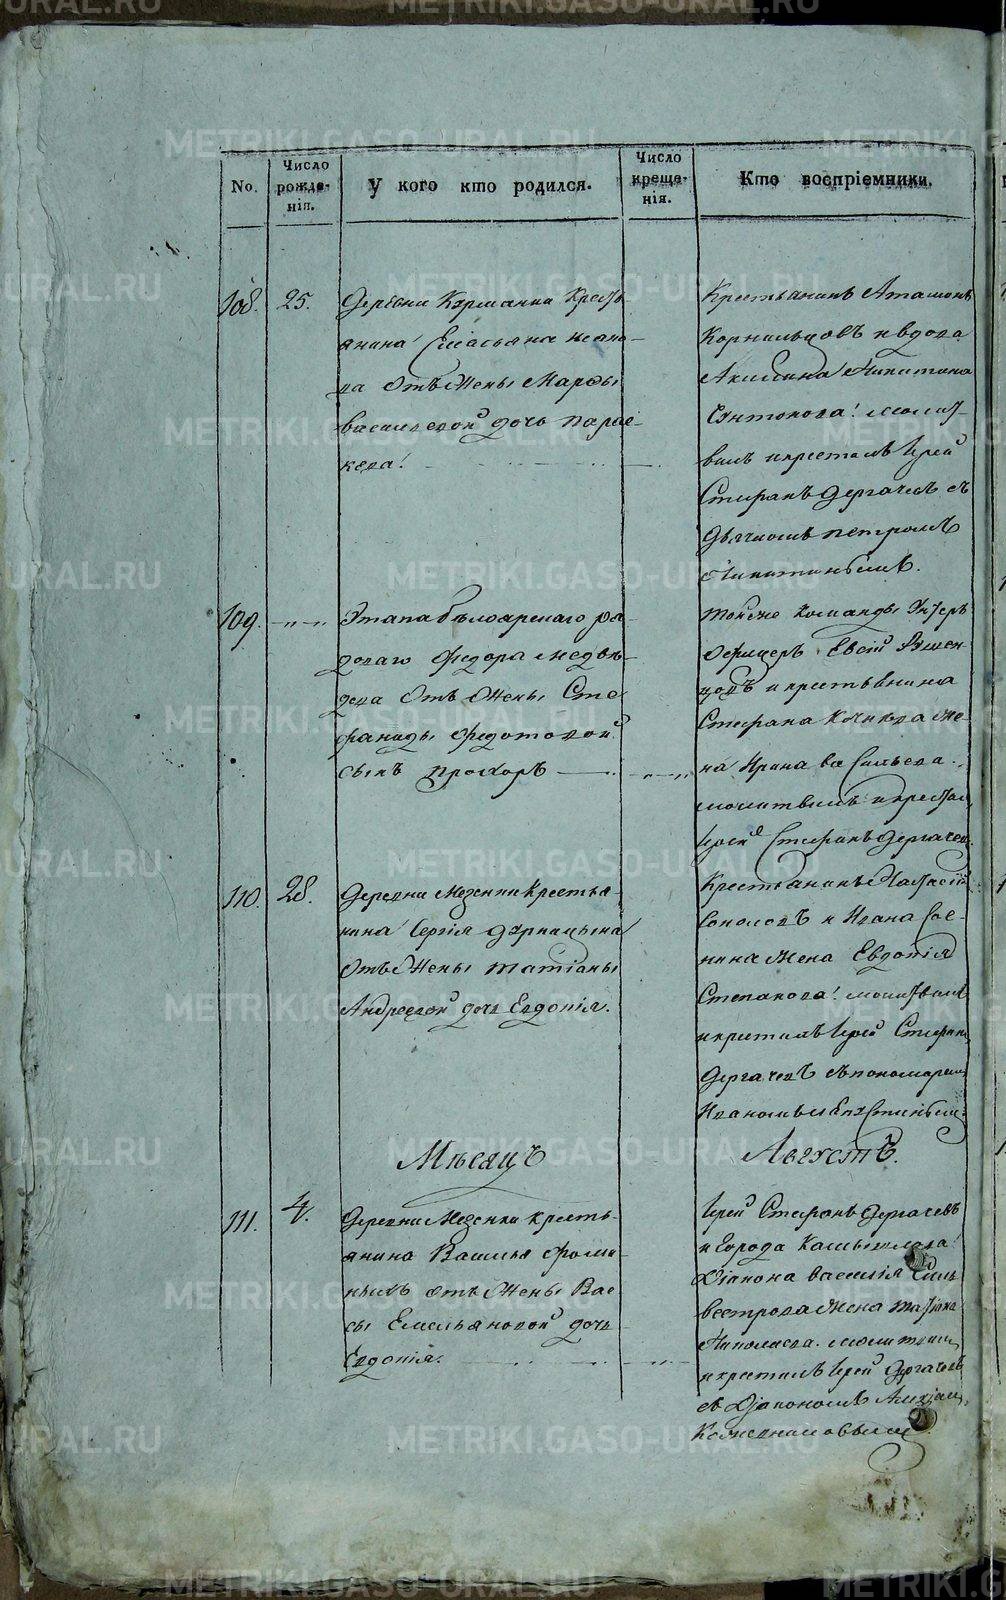 No.
Число рожде-
нія.
У кого кто родился.
Число креще-
нія.
Кто воспріемники.
108.
25.
Деревни Курманки Кресть-
янина Емельяна Ивано-
ва отъ жены Марфы
васильевой дочь парас-
кева!
Крестьянинъ
Корнильцовъ и вдова
Акилина Никитина
Антонова! молит-
вилъ и крестилъ Іерей
Стефанъ Дергачевъ съ
Дьячкомъ петромъ
109.
Этапа бѣлоярскаго ря-
доваго Федора Медвѣ-
дева отъ жены Сте-
фаниды Федотовой
сынъ прохоръ
тойже Команды Унтеръ
офицеръ
и крестьянина
Стефана Кочнева же-
на Ирина васильева.
молитвилъ и крестил
Іерей Стефанъ Дергачев
110.
28.
Деревни Мезенки Крестья-
нина Сергія
отъ жены татіаны
Андреевой дочь Евдокія.
Крестьянинъ
Соколовъ и Ивана Сое-
нина жена Евдокія
Степанова! молитвилъ
и крестилъ Іерей Стефанъ
Дергачевъ съ пономарем
Иваномъ
Мѣсяцъ
Августъ.
111.
4.
Деревни Мезенки кресть-
янина Василья Фоми-
ныхъ отъ жены Вас-
сы Емельяновой дочь
Евдокія.
Іерей Стефанъ Дергачевъ
и города Камышлова
Діакона василія Силь-
вестрова жена татіана
Николаева. молитвил
и крестилъ Іерей Дергачевъ
съ Діакономъ
METRIKI.GASO-URAL.RU